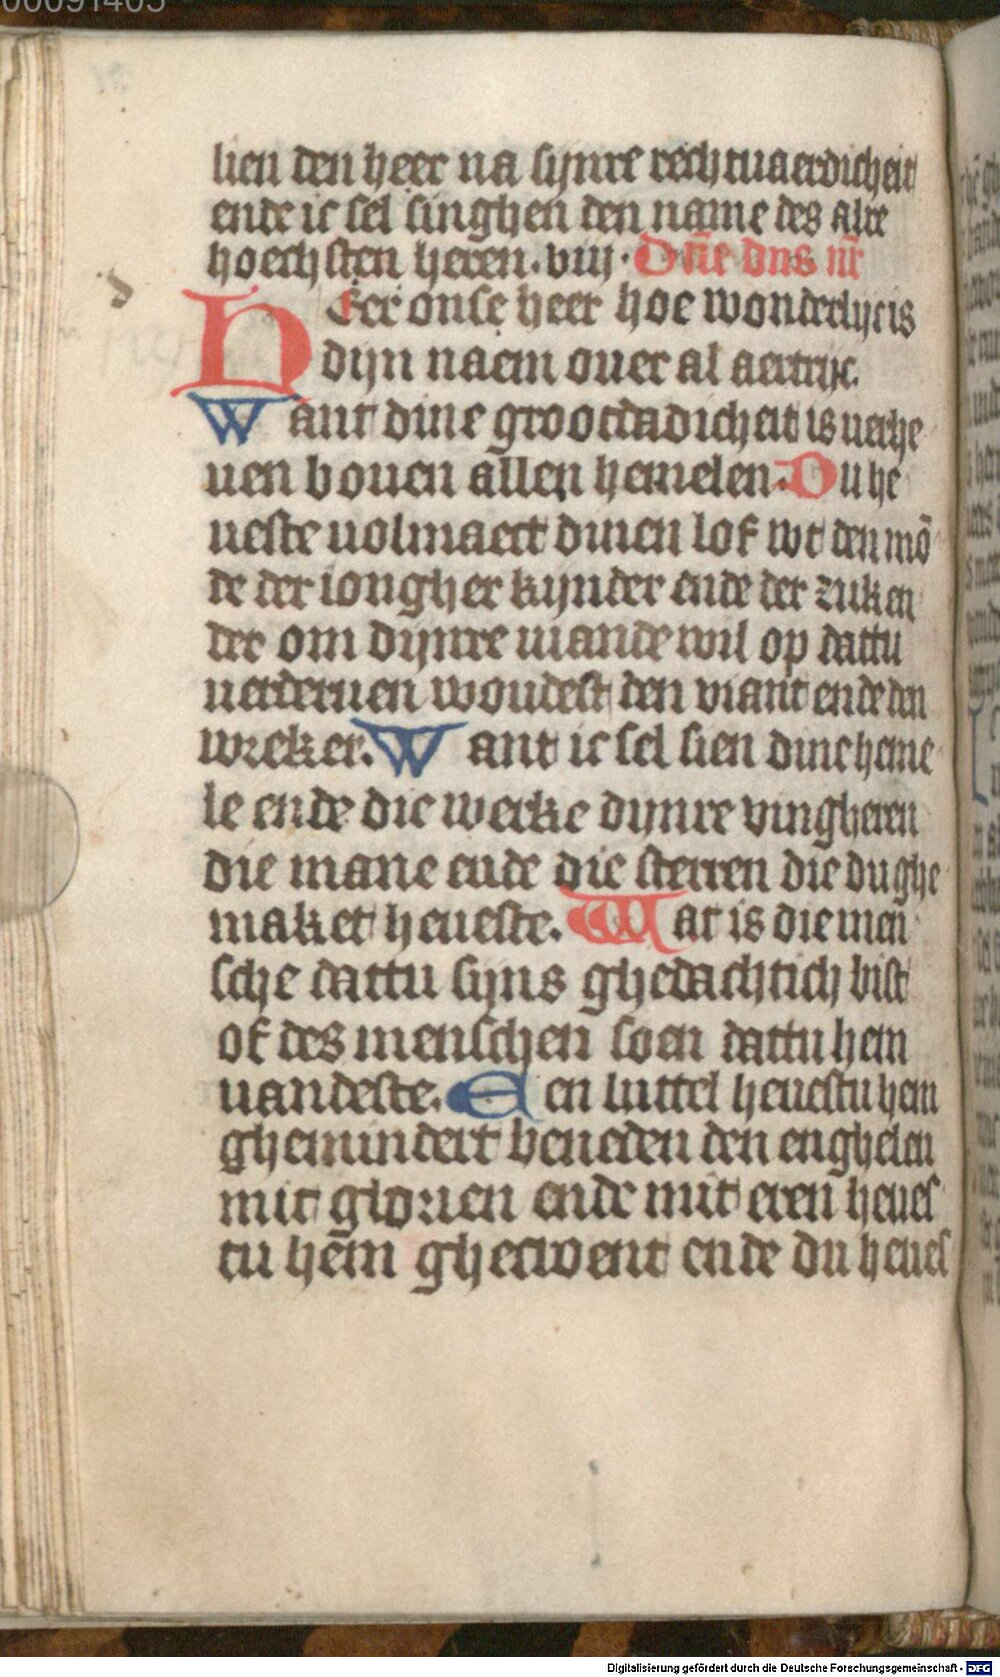 00091405
lien den heer na synre rechtuaerdicheit
ende ic sel singhen den name des alre
hoechsten heren. viij. Dn̄e dns nr̄
HEer onse heer hoe wonderlyc is
dijn naem ouer al aertrijc.
Want dine grootdadicheit is uerhe
uen bouen allen hemelen. Du he
ueste uolmaect dinen lof wt den mō
de der iongher kynder ende der zuken
der om dijnre uiande wil op dattu
uerderuen woudest den viant ende den
wreker. Want ic sel sien dine heme
le ende die werke dynre vingheren
die mane ende die sterren die du ghe
maket heueste. Wat is die men
sche dattu syns ghedachtich bist
of des menschen soen dattu hem
uandeste. Een luttel heuestu hem
ghemindert beneden den enghelen
mit glorien ende mit eren heues
tu hem ghecroent ende du heues
Digitalisierung gefördert durch die Deutsche Forschungsgemeinschaft - DFG